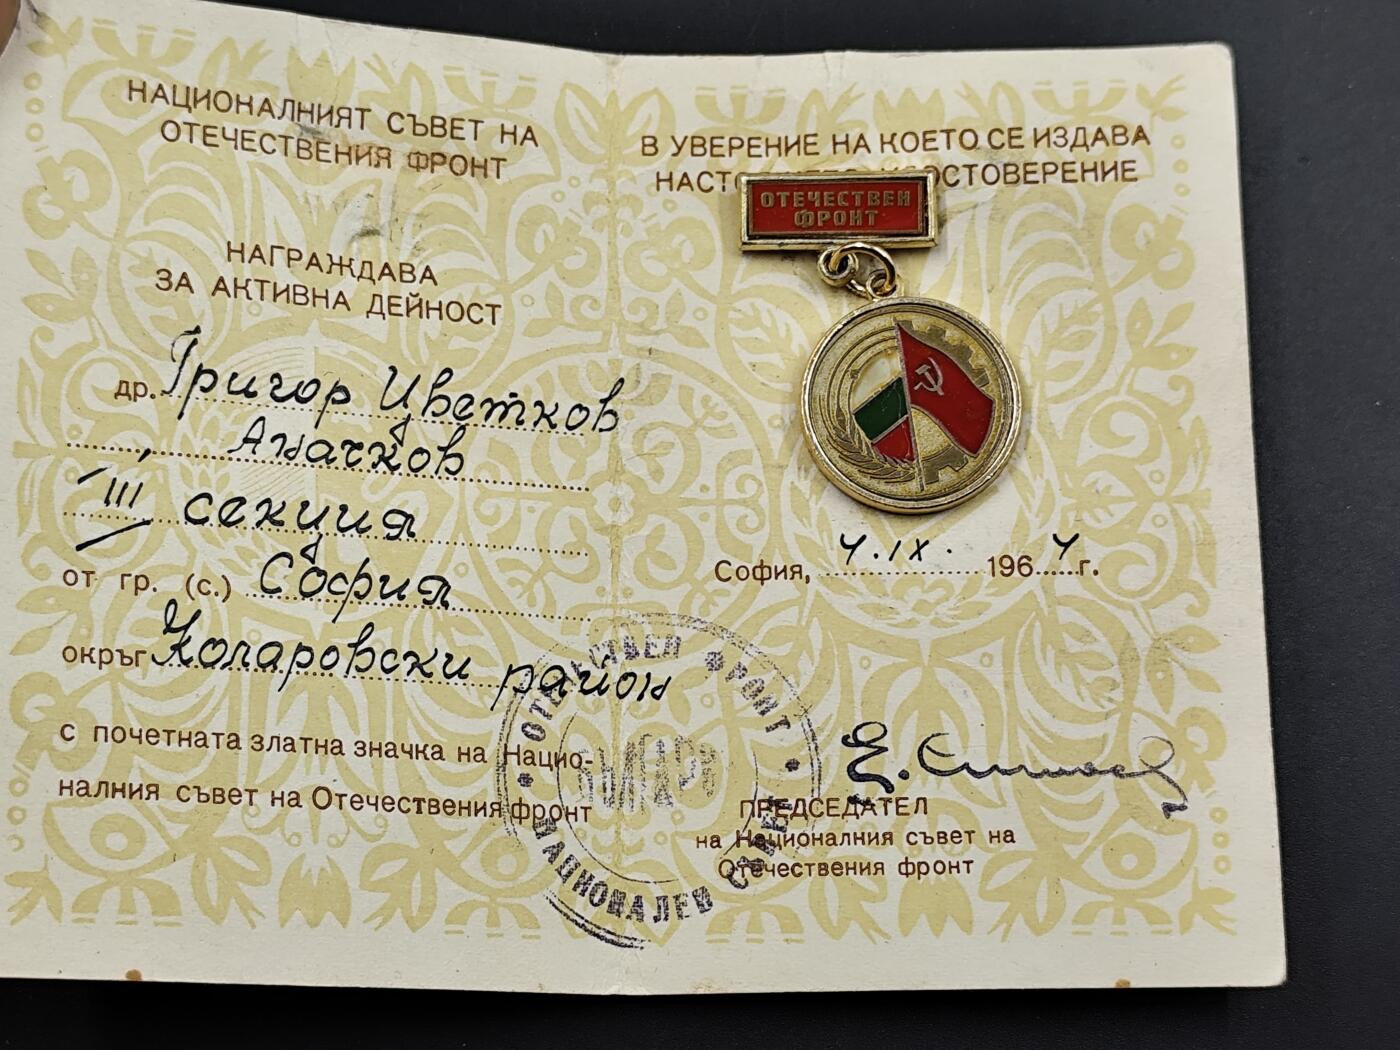 НАЦИОНАЛНИЯТ СЪВЕТ НА
ОТЕЧЕСТВЕНИЯ ФРОНТ
НАГРАЖДАВА
ЗА АКТИВНА ДЕЙНОСТ
др. Григор Цветков
Аначков
III секция
от гр. (с.) София
окръг Коларовски район
с почетната златна значка на Нацио-
налния съвет на Отечествения фронт
В УВЕРЕНИЕ НА КОЕТО СЕ ИЗДАВА
ОТЕЧЕСТВЕН
ФРОНТ
София, 4.IX. 1964 г.
ПРЕДСЕДАТЕЛ
на Националния съвет на
Отечествения фронт
ОТЕЧЕСТВЕН ФРОНТ
НАЦИОНАЛЕН СЪВЕТ